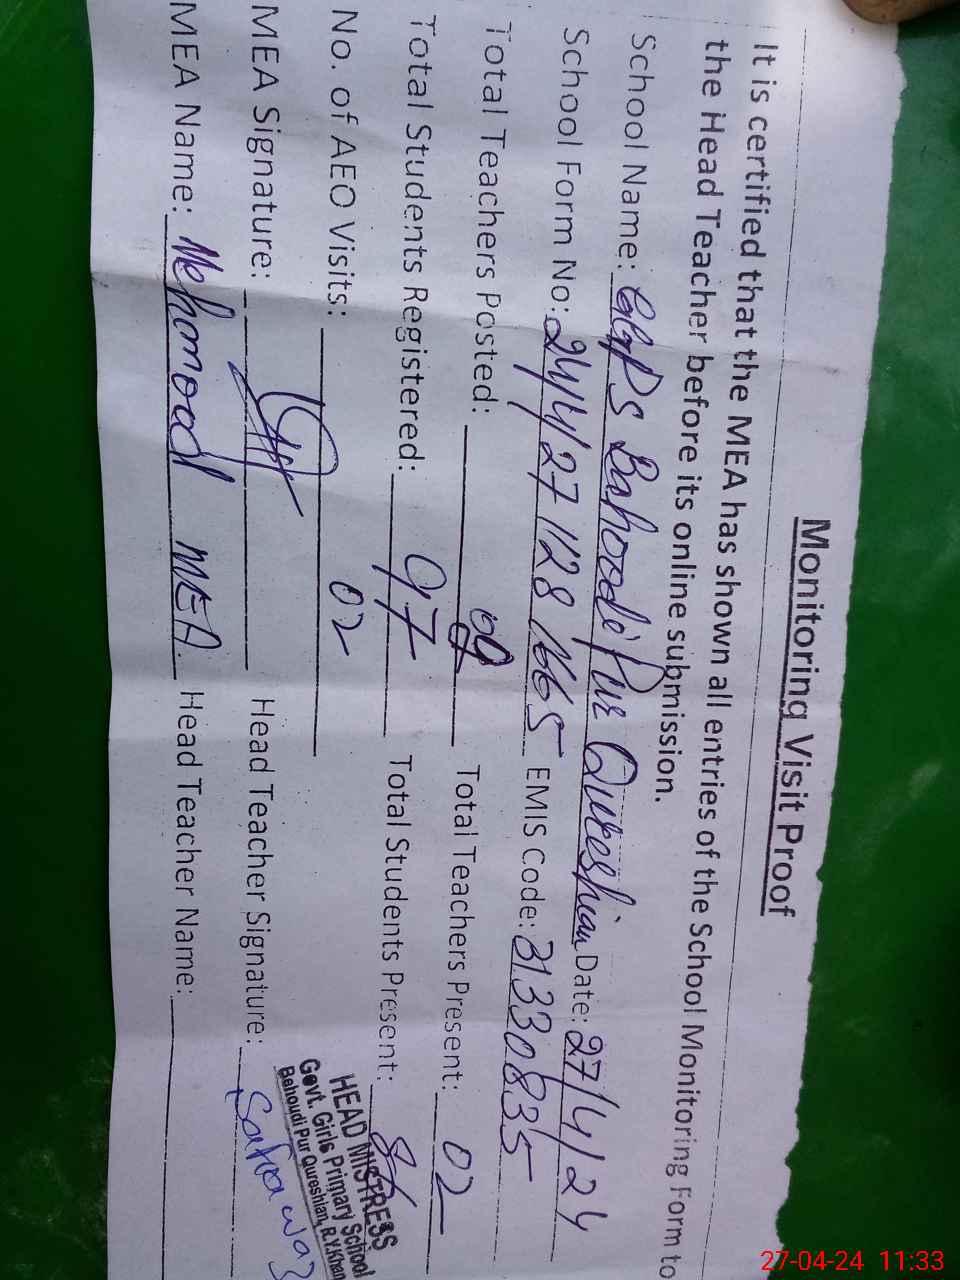 Monitoring Visit Proof
It is certified that the MEA has shown all entries of the School Monitoring Form to
the Head Teacher before its online submission.
School Name: GGPS Bahoodi Pur Qureshian Date: 27/4/24
School Form No: 2414/27/128/665 EMIS Code: 31330835
Total Teachers Posted: Total Teachers Present: 02
Total Students Registered: 97 Total Students Present:
No. of AEO Visits: 02
MEA Signature: Head Teacher Signature:
MEA Name: Mehmood MEA. Head Teacher Name:
HEAD MISTRESS
Govt. Girls Primary School
Bahoudi Pur Qureshian, R.Y.Khan
27-04-24 11:33